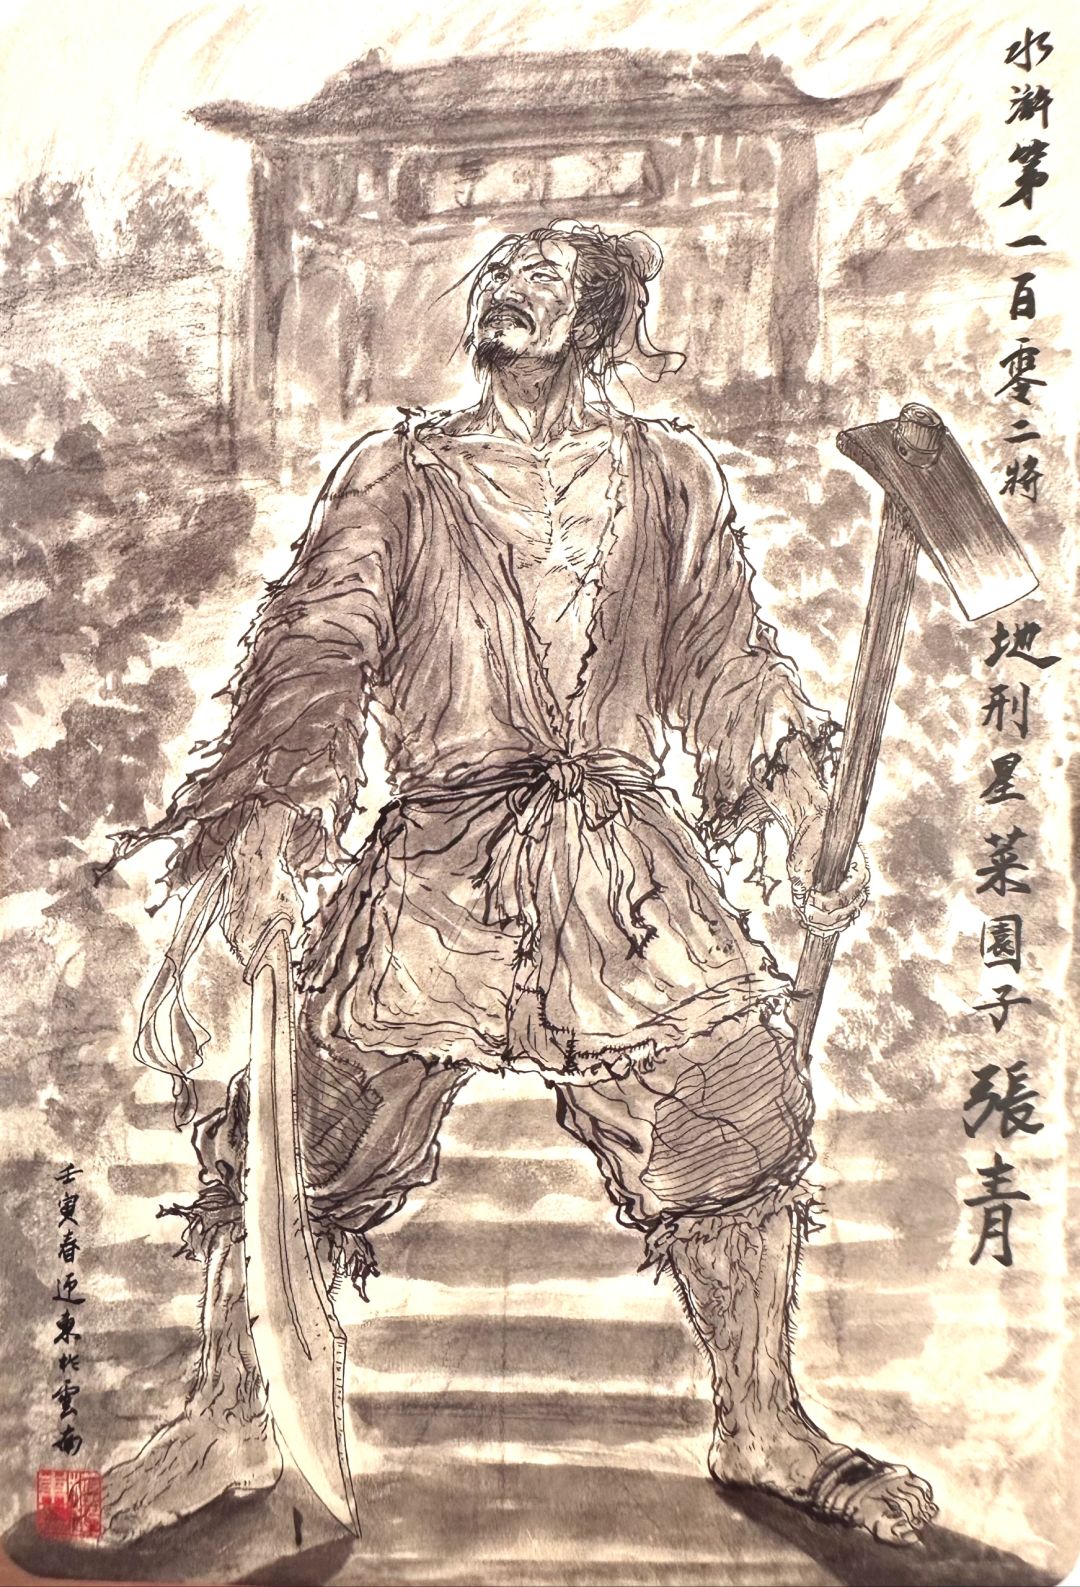 水滸第一百零二將
地刑星菜園子張青
壬寅春迎東於雲南